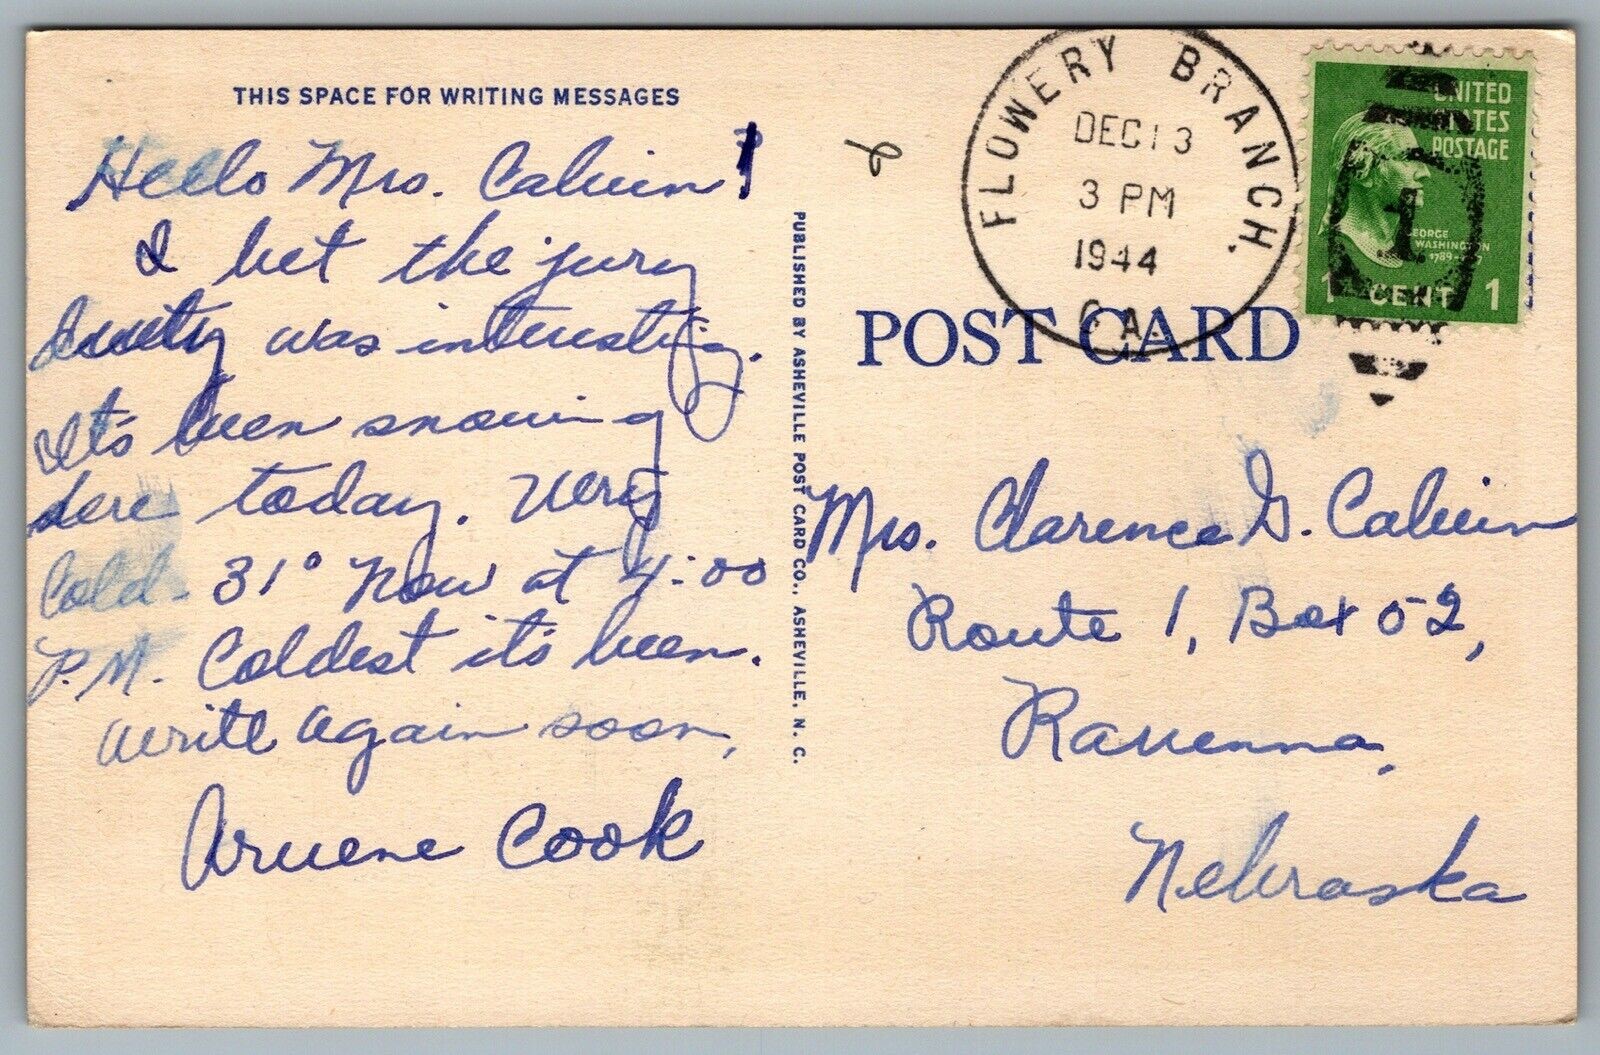 THIS SPACE FOR WRITING MESSAGES
Hello Mrs. Calvin!
I bet the jury
duity was interesting.
It's been snowing
here today. Very
Cold - 31° Now at 4:00
P.M. Coldest it's been.
Write again soon,
Aruene Cook
PUBLISHED BY ASHEVILLE POST CARD CO., ASHEVILLE, N. C.
FLOWERY BRANCH.
DEC 13
3 PM
1944
GA.
UNITED
STATES
POSTAGE
GEORGE
WASHINGTON
1 CENT 1
POST CARD
Mrs. Clarence G. Calvin
Route 1, Box 52,
Ravenna,
Nebraska